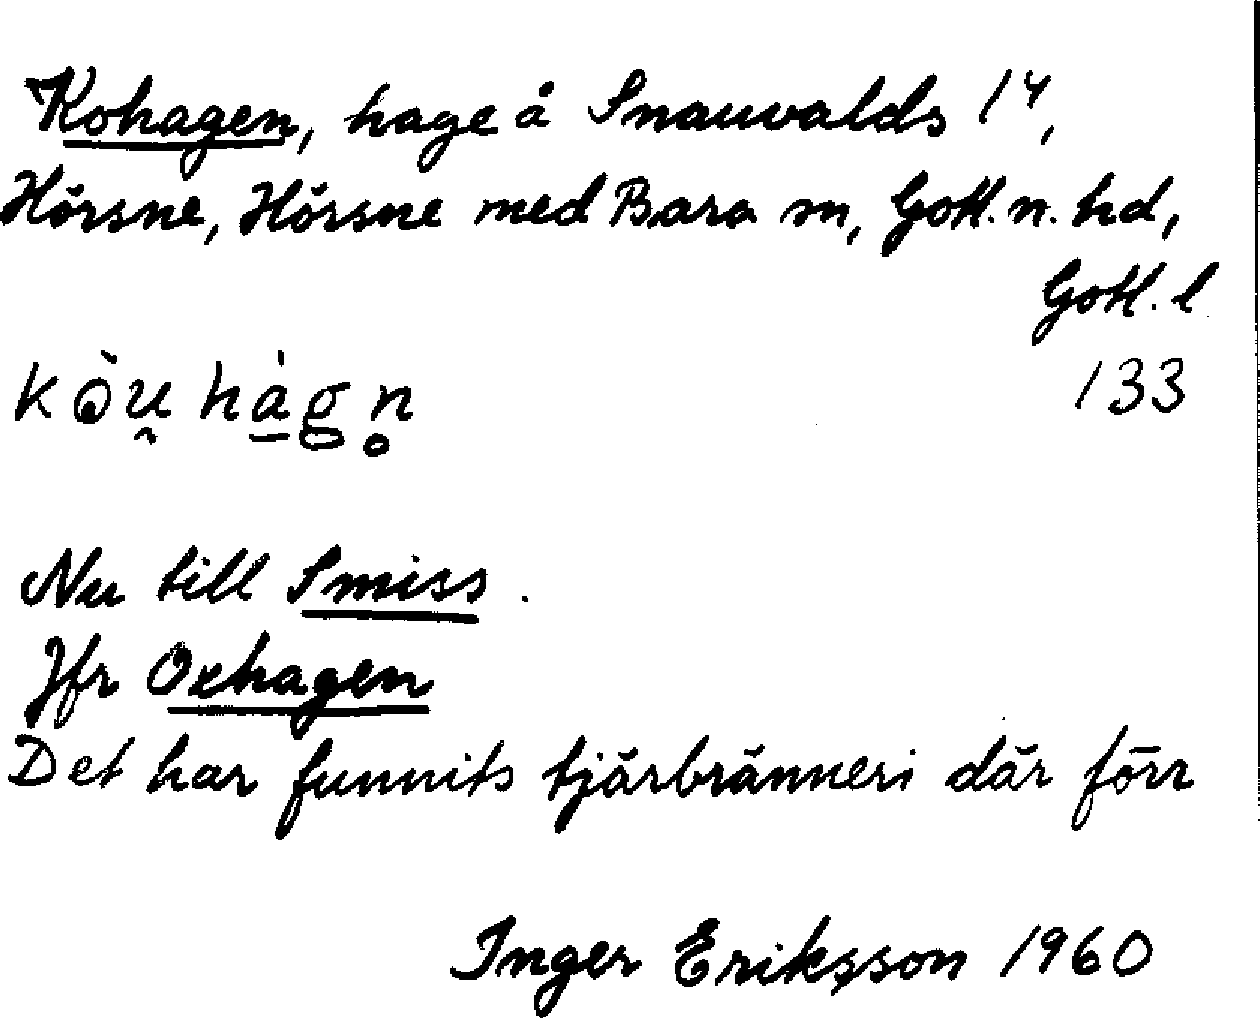 Kohagen, hage å Snauvalds 1⁴,
Hörsne, Hörsne med Bara sn, Gotl. n. hd,
Gotl. l
133
kòu̯hág̱n̥
Nu till Smiss.
Jfr Oxhagen
Det har funnits tjärbränneri där förr
Inger Eriksson 1960